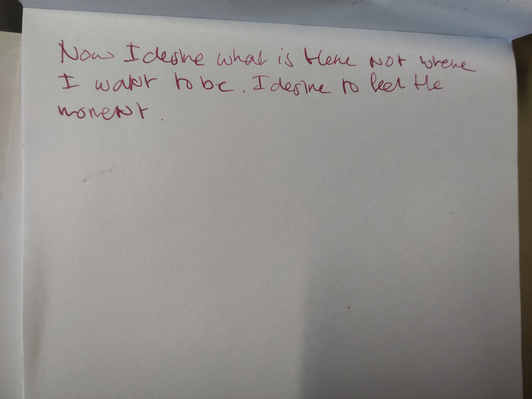 Now I desire what is there not where
I want to be. I desire to feel the
moment.